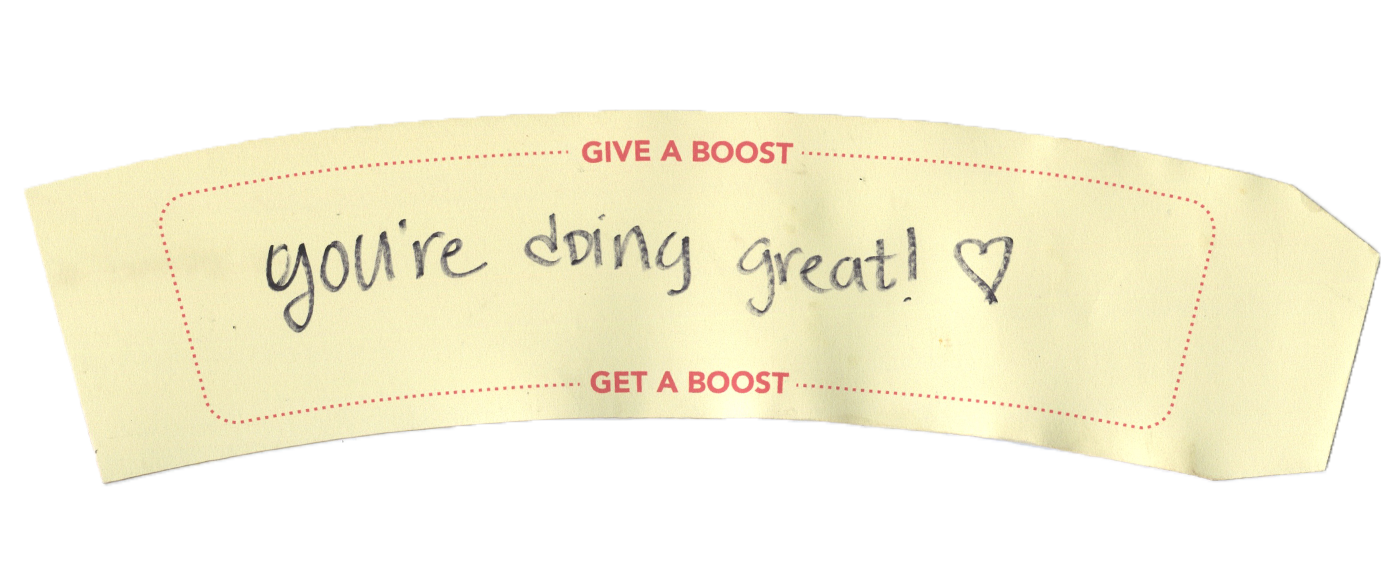 GIVE A BOOST
you're doing great! ♡
GET A BOOST